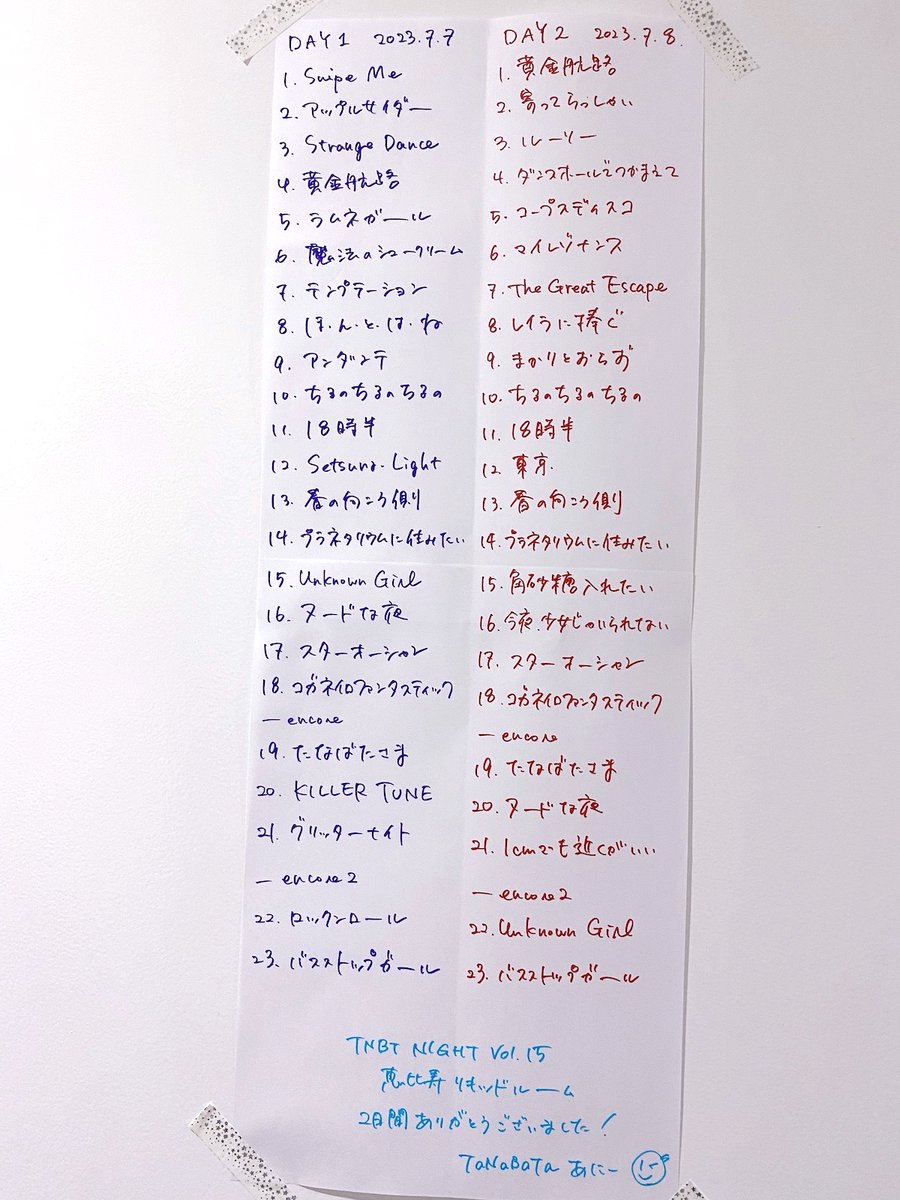 DAY1 2023.7.7
1. Swipe Me
2. アップルサイダー
3. Strange Dance
4. 黄金航路
5. ラムネガール
6. 魔法のシュークリーム
7. テンプテーション
8. ほ.ん.と.は.ね
9. アンダンテ
10. ちるのちるのちるの
11. 18時半
12. Setsuna.Light
13. 春の向こう側
14. プラネタリウムに住みたい
15. Unknown Girl
16. ヌードな夜
17. スターオーシャン
18. コガネイロファンタスティック
— encore
19. たなばたさま
20. KILLER TUNE
21. グリッターナイト
— encore2
22. ロックンロール
23. バスストップガール
DAY2 2023.7.8.
1. 黄金航路
2. 寄ってらっしゃい
3. ルーリー
4. ダンスホールでつかまえて
5. コープスディスコ
6. マイレゾナンス
7. The Great Escape
8. レイラに捧ぐ
9. まかりとおらず
10. ちるのちるのちるの
11. 18時半
12. 東京.
13. 春の向こう側
14. プラネタリウムに住みたい
15. 角砂糖入れたい
16. 今夜、少女じゃいられない
17. スターオーシャン
18. コガネイロファンタスティック
— encore
19. たなばたさま
20. ヌードな夜
21. 1cmでも近くがいい
— encore2
22. Unknown Girl
23. バスストップガール
TNBT NIGHT Vol.15
恵比寿リキッドルーム
2日間ありがとうございました！
TaNaBaTa あにー